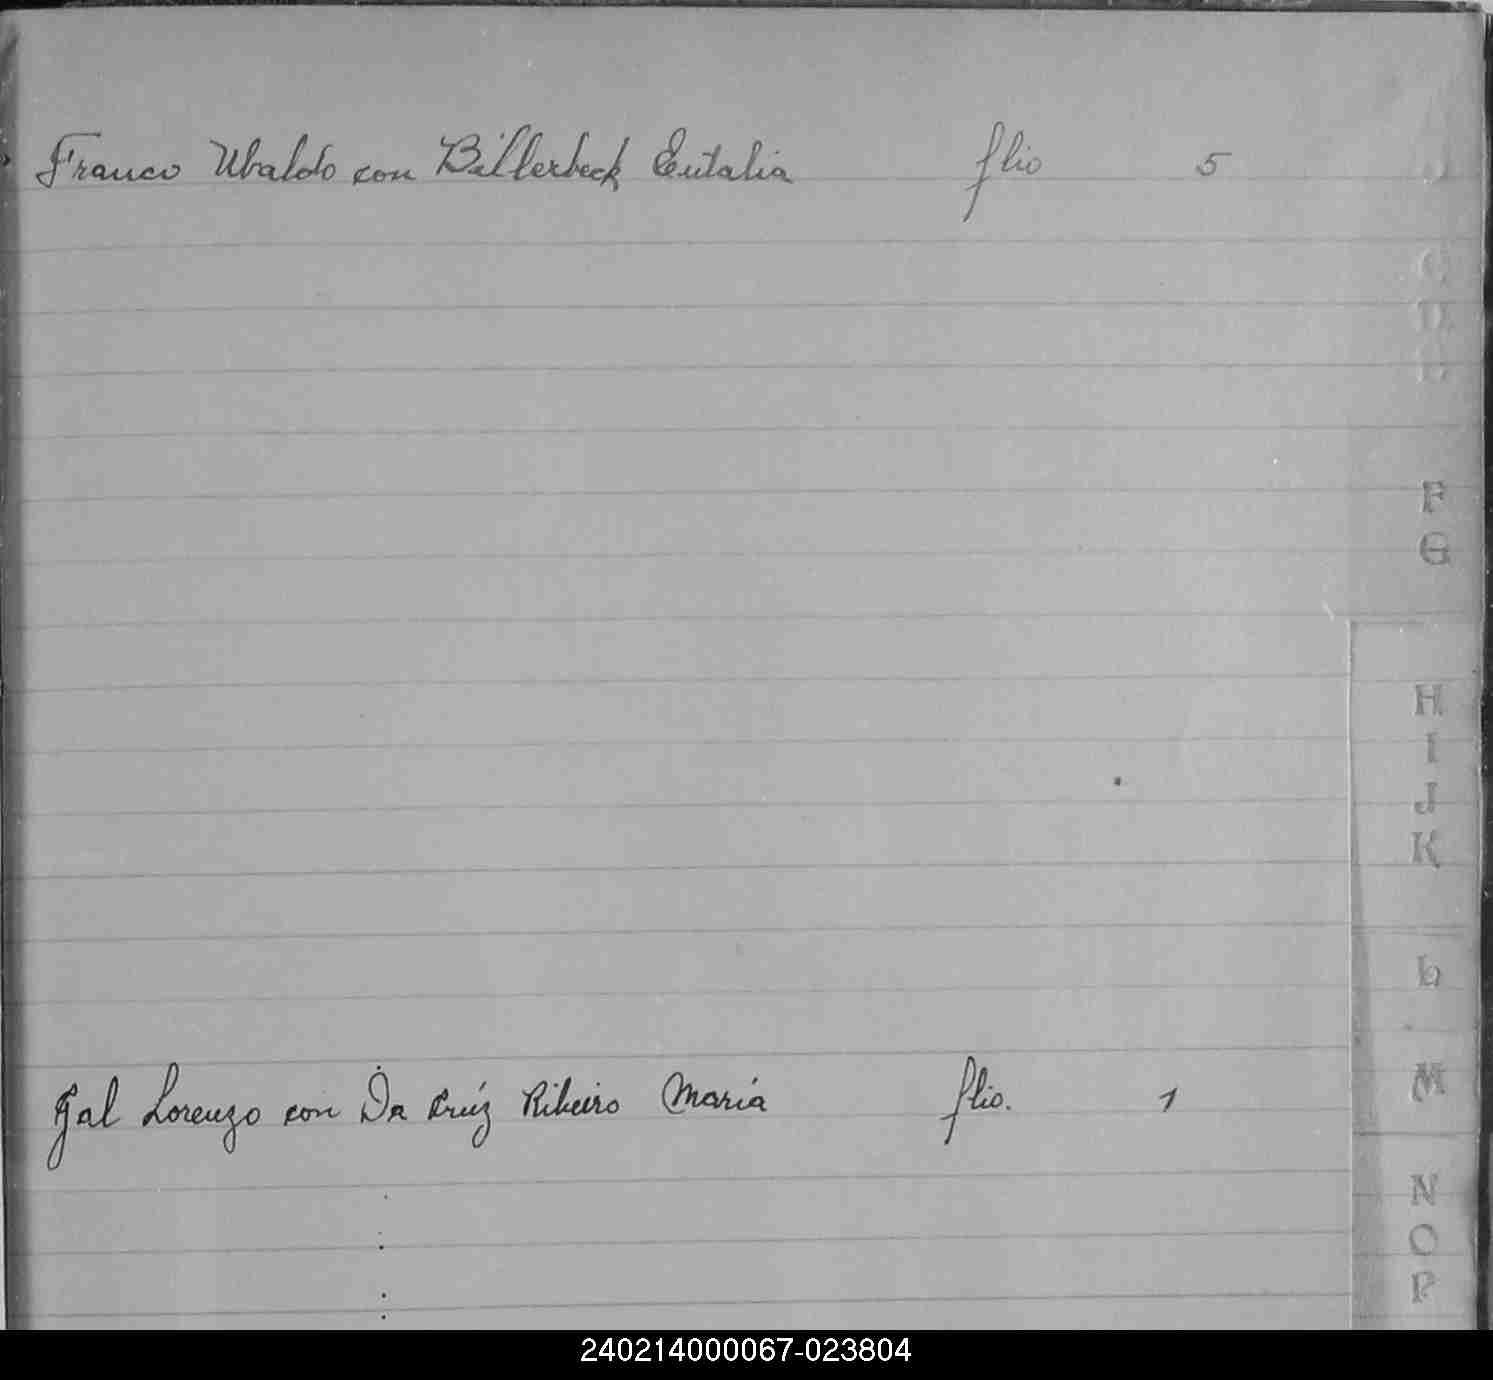 Franco Ubaldo con Billerbeck Eutalia flio 5
F
G
H
I
J
K
L
Gal Lorenzo con Da Crúz Ribeiro María flio. 1
M
N
O
P
240214000067-023804